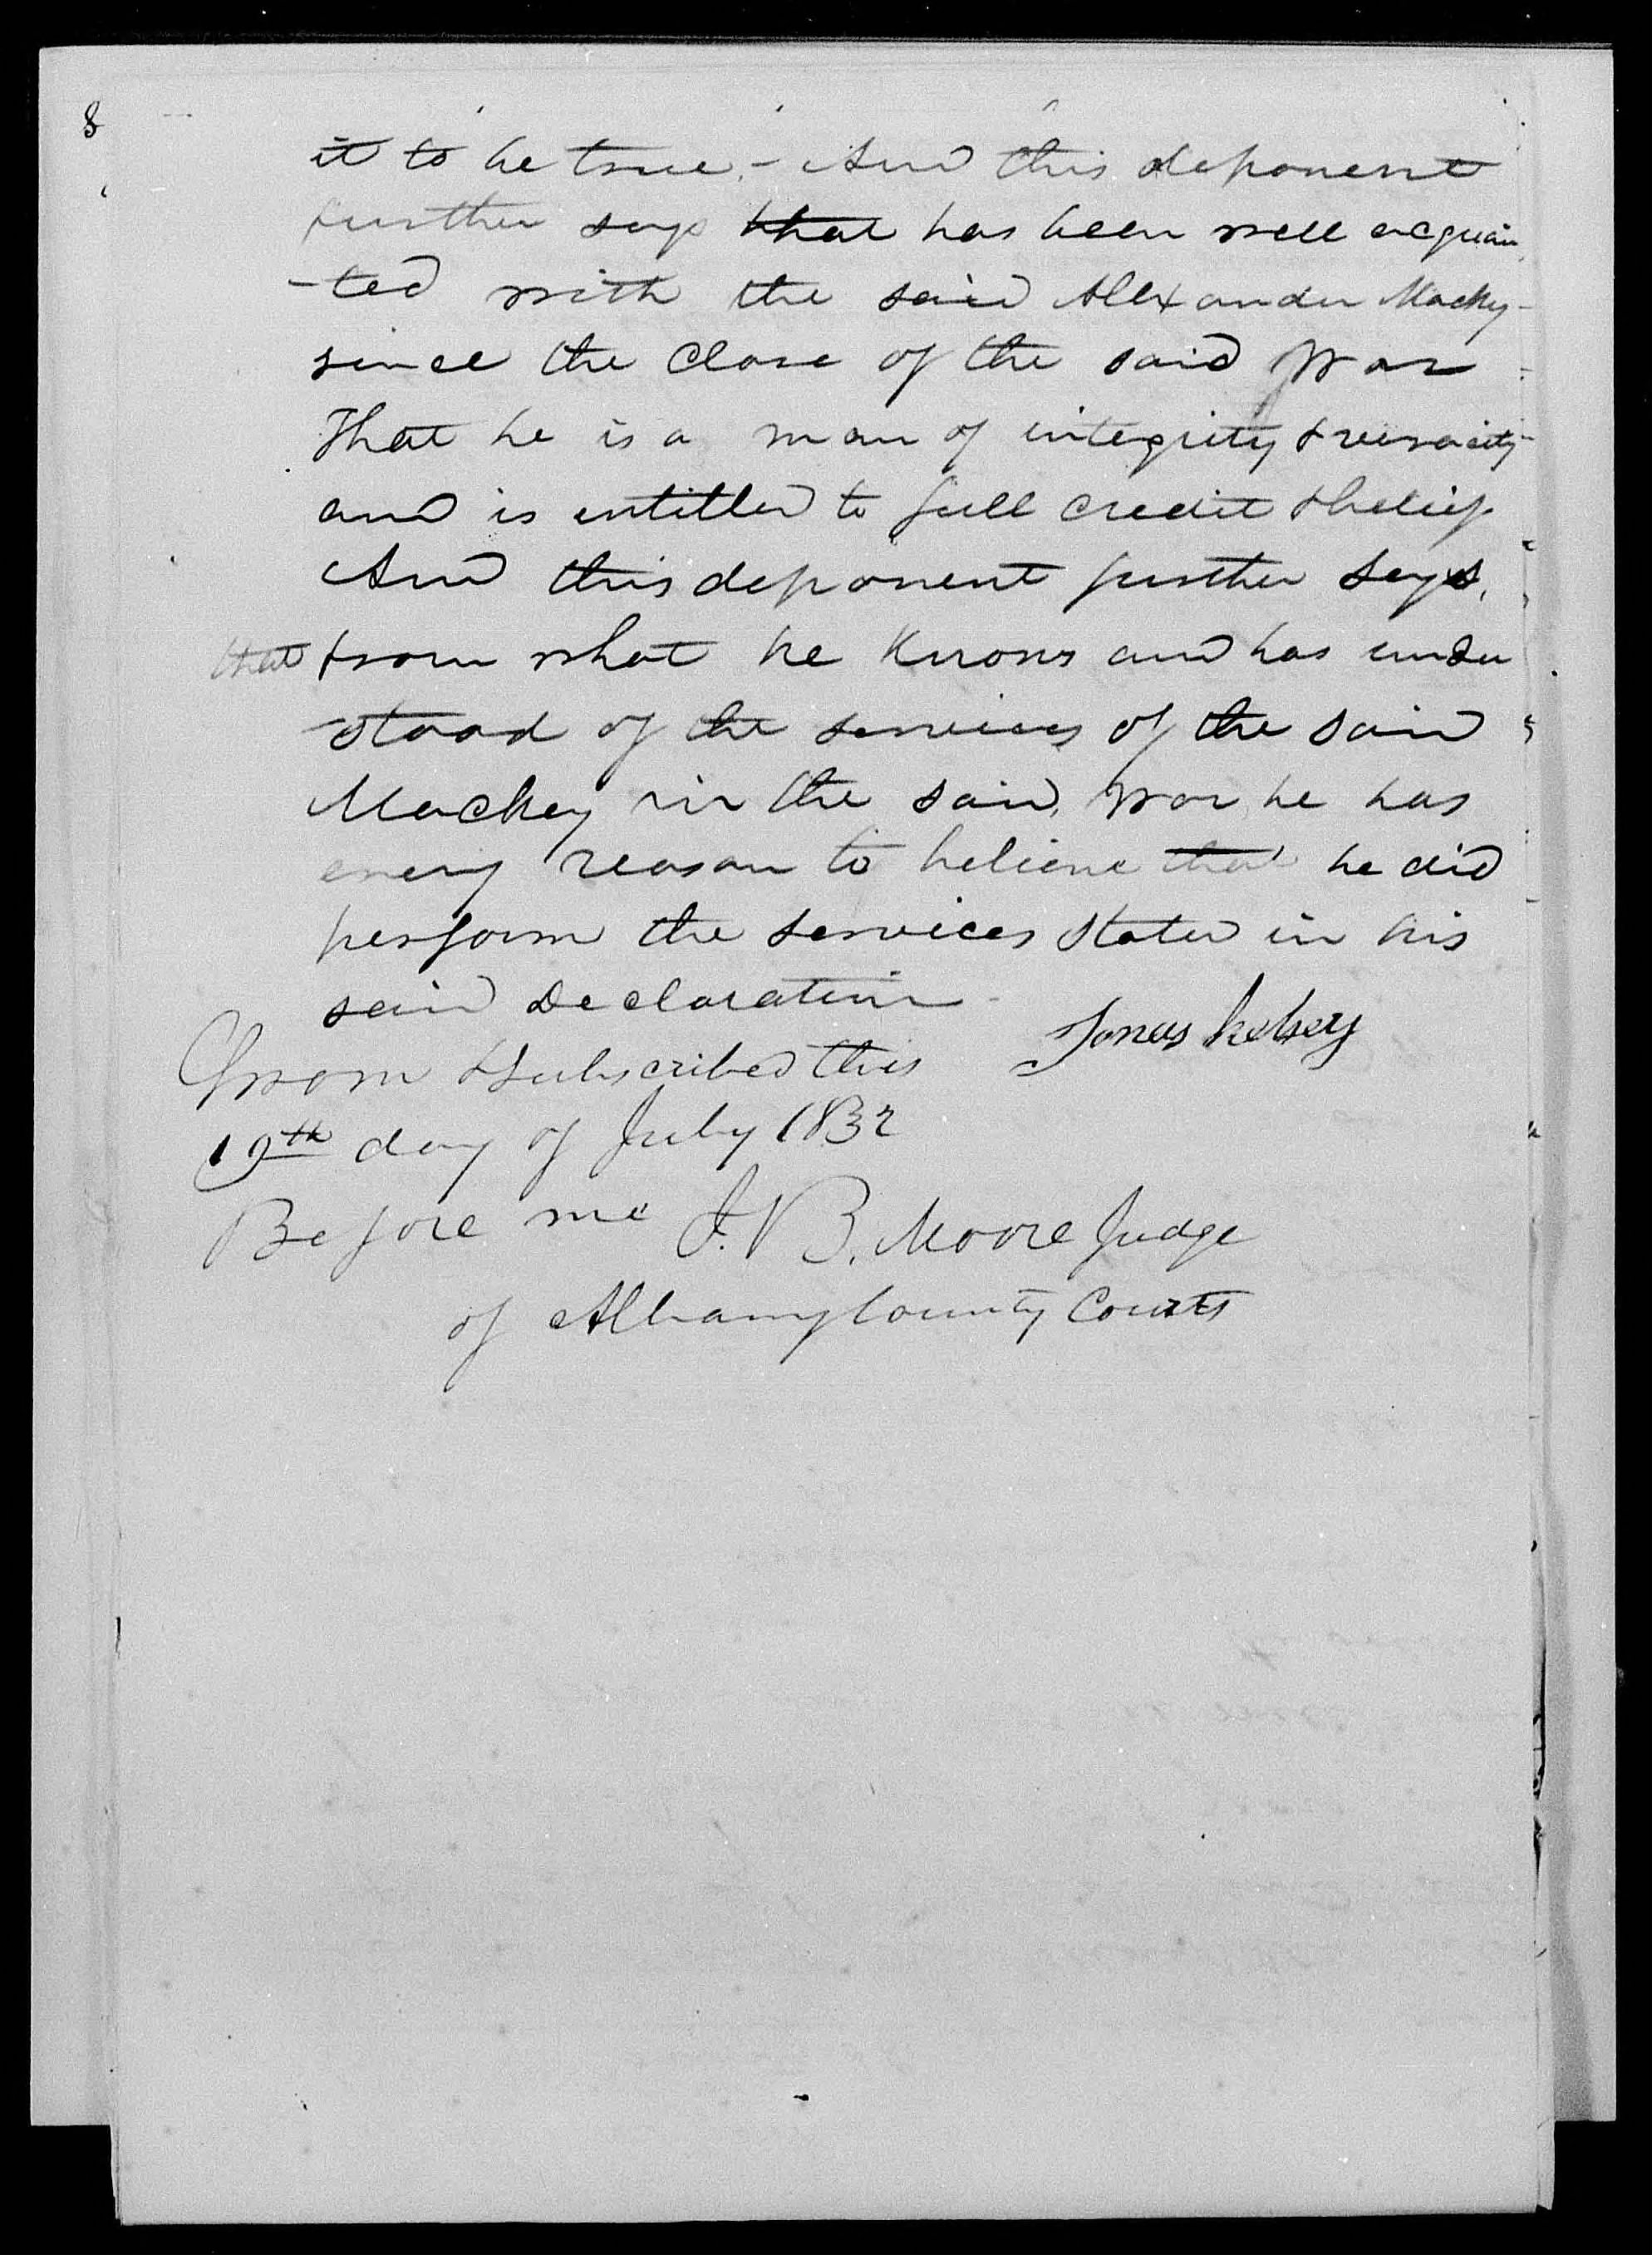 8
it to be true,- And this deponent
further says that has been well acquain
-ted with the said Allxander Macky-
since the Close of the said War
That he is a man of integrity & veracity
and is entitled to full credit & belief
And this deponent further says,
that from what he knows and has under
stood of the services of the said
Mackey in the said, War he has
every reason to believe that he did
perform the services stated in his
said Declaration
Jonas Kelsey
Sworn & Subscribed this
19th day of July 1832
Before me J. B. Moore Judge
of Albany County Courts